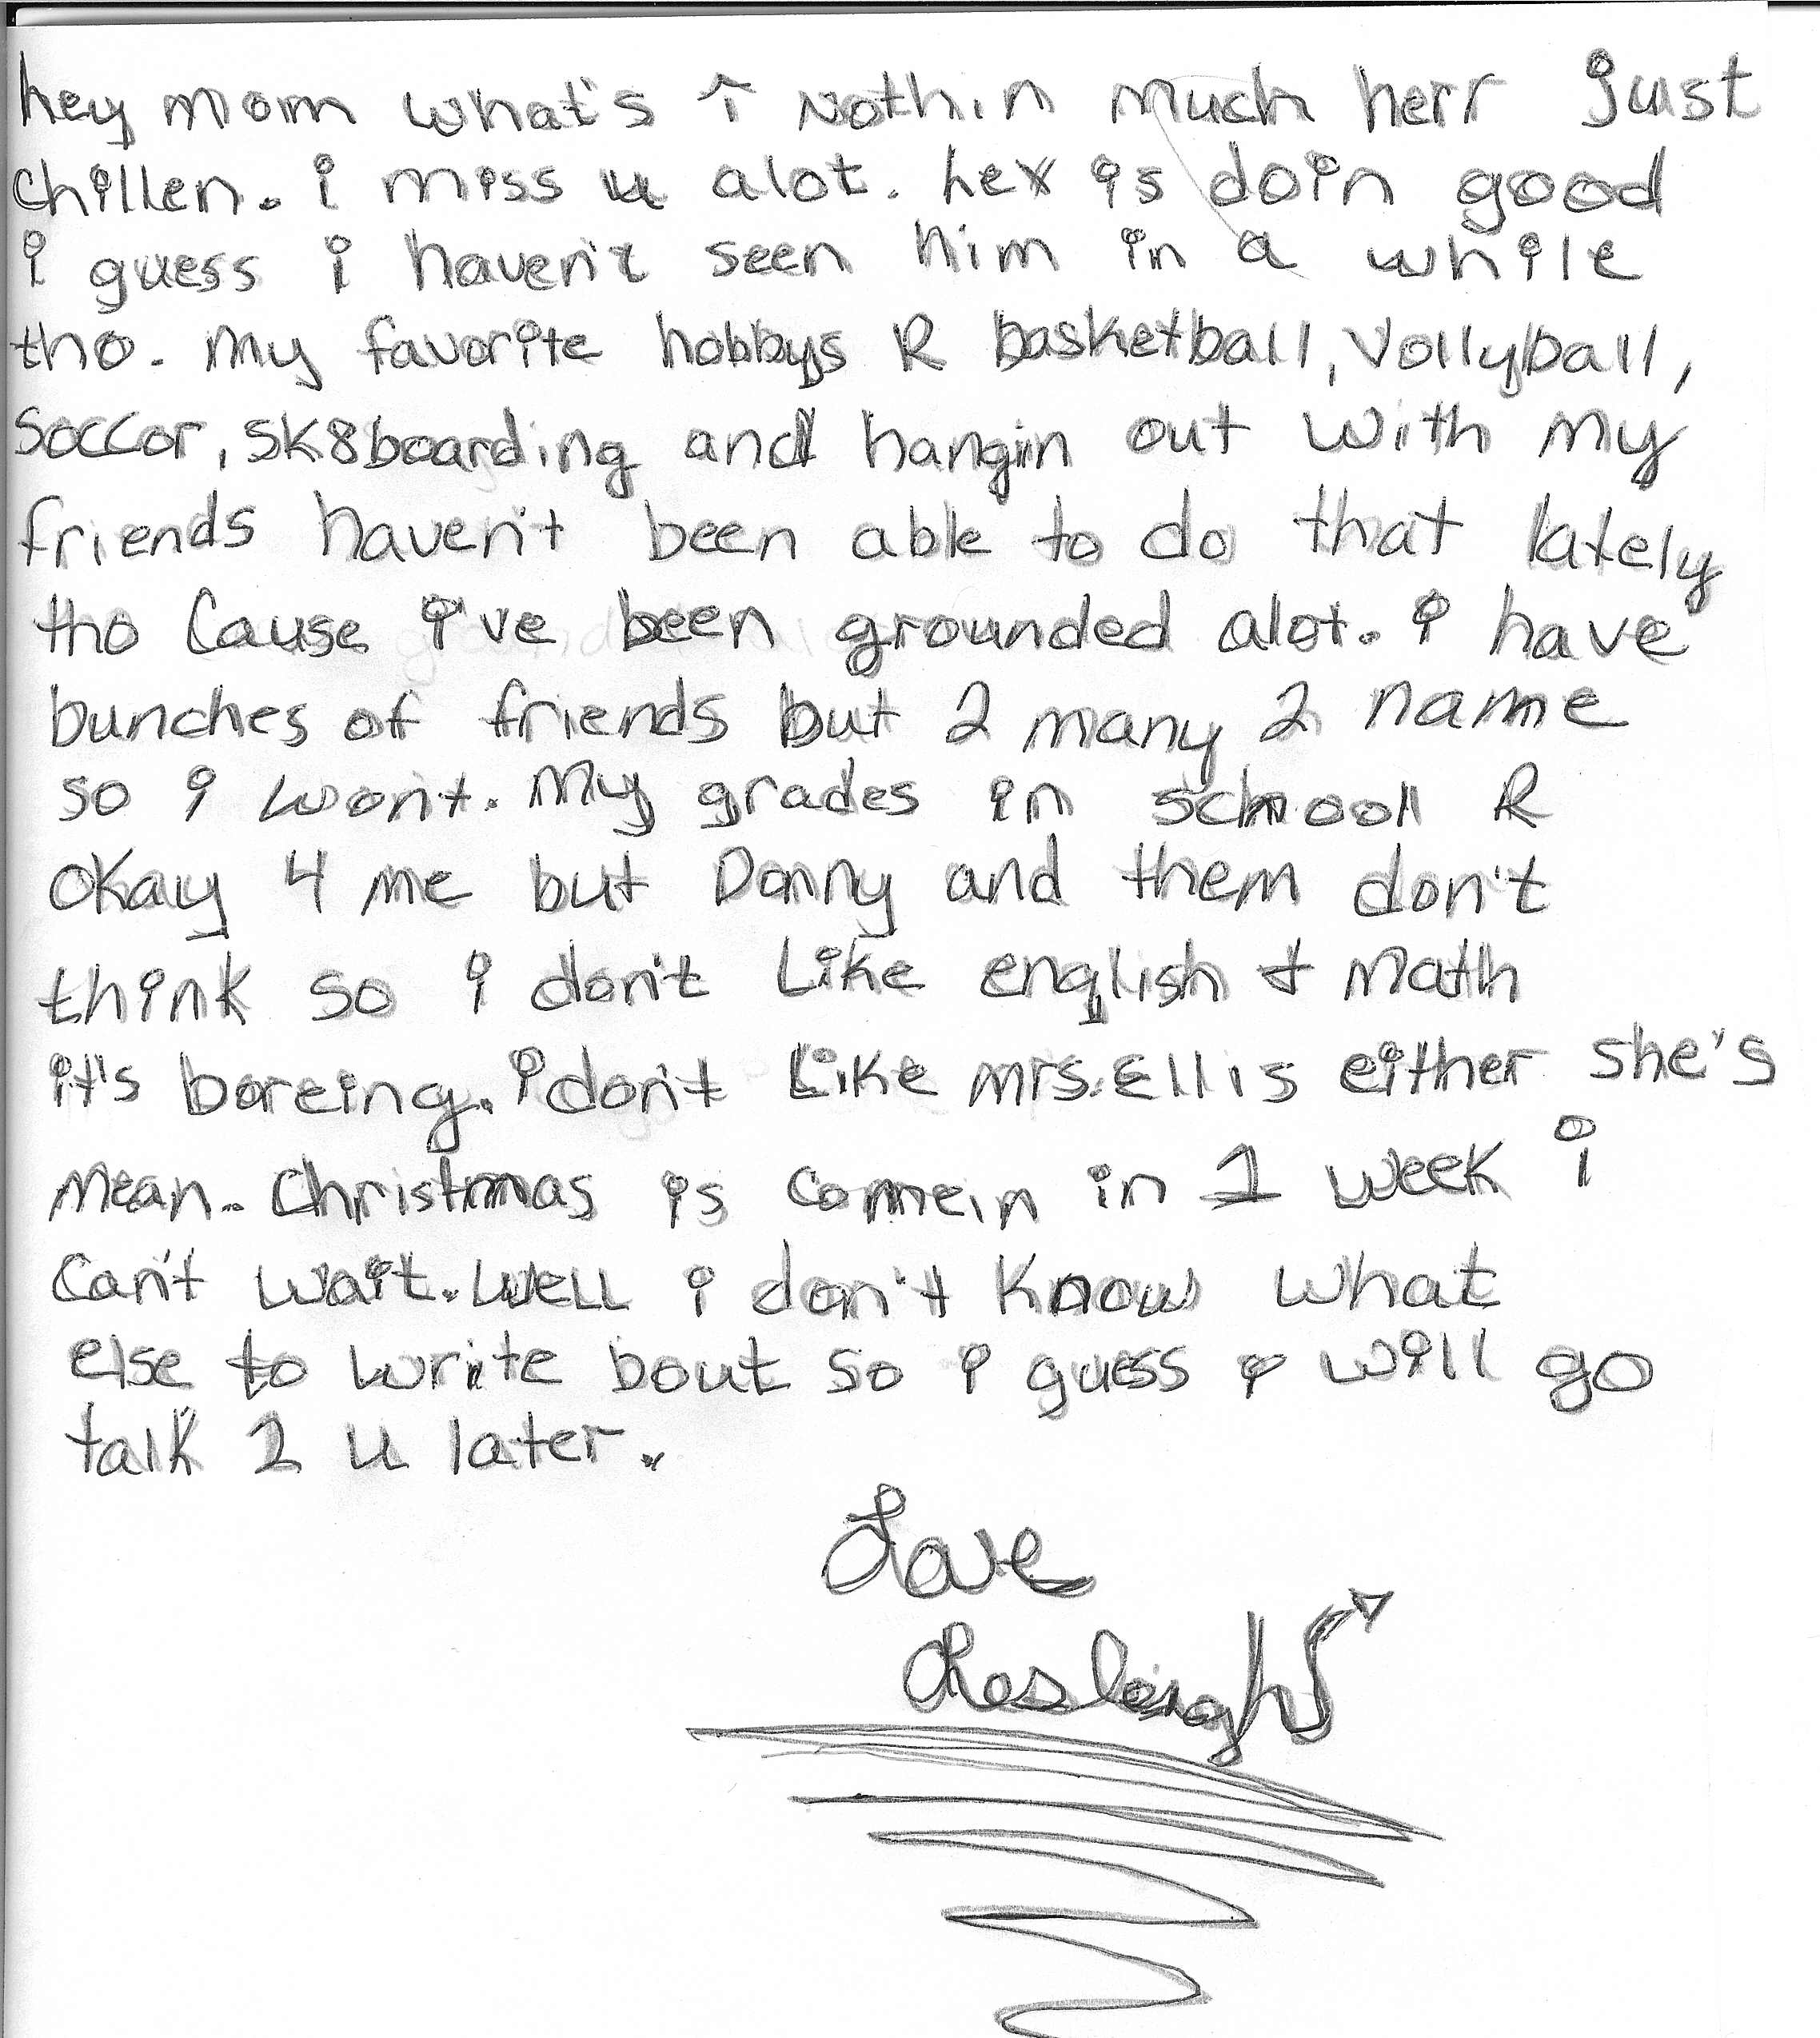 hey mom what's ↑ Nothin much herr just
chillen. i miss u alot. Lex is doin good
i guess i haven't seen him in a while
tho. My favorite hobbys R basketball, Vollyball,
Soccor, SK8boarding and hangin out with my
friends haven't been able to do that lately
tho Cause i've been grounded alot. i have
bunches of friends but 2 many 2 name
so i won't. My grades in school R
Okay 4 me but Donny and them don't
think so i don't Like english & Math
it's boreing. i don't Like Mrs. Ellis either she's
Mean. Christmas is comein in 1 week i
Can't wait. Well i don't Know what
else to write bout so i guess i will go
talk 2 u later.
Love
Lesleigh